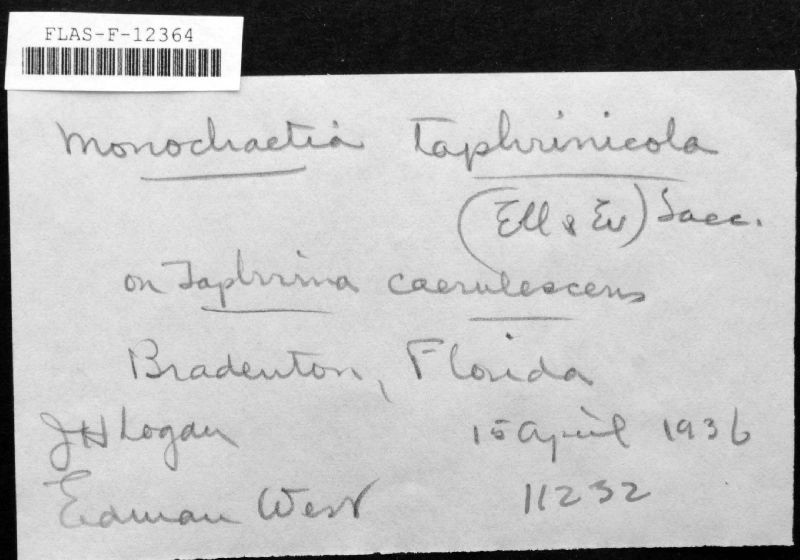 FLAS-F-12364
Monochaetia taphrinicola
(Ell & Ev) Sacc.
on Taphrina caerulescens
Bradenton, Florida
JH Logan 15 April 1936
Erdman West 11232